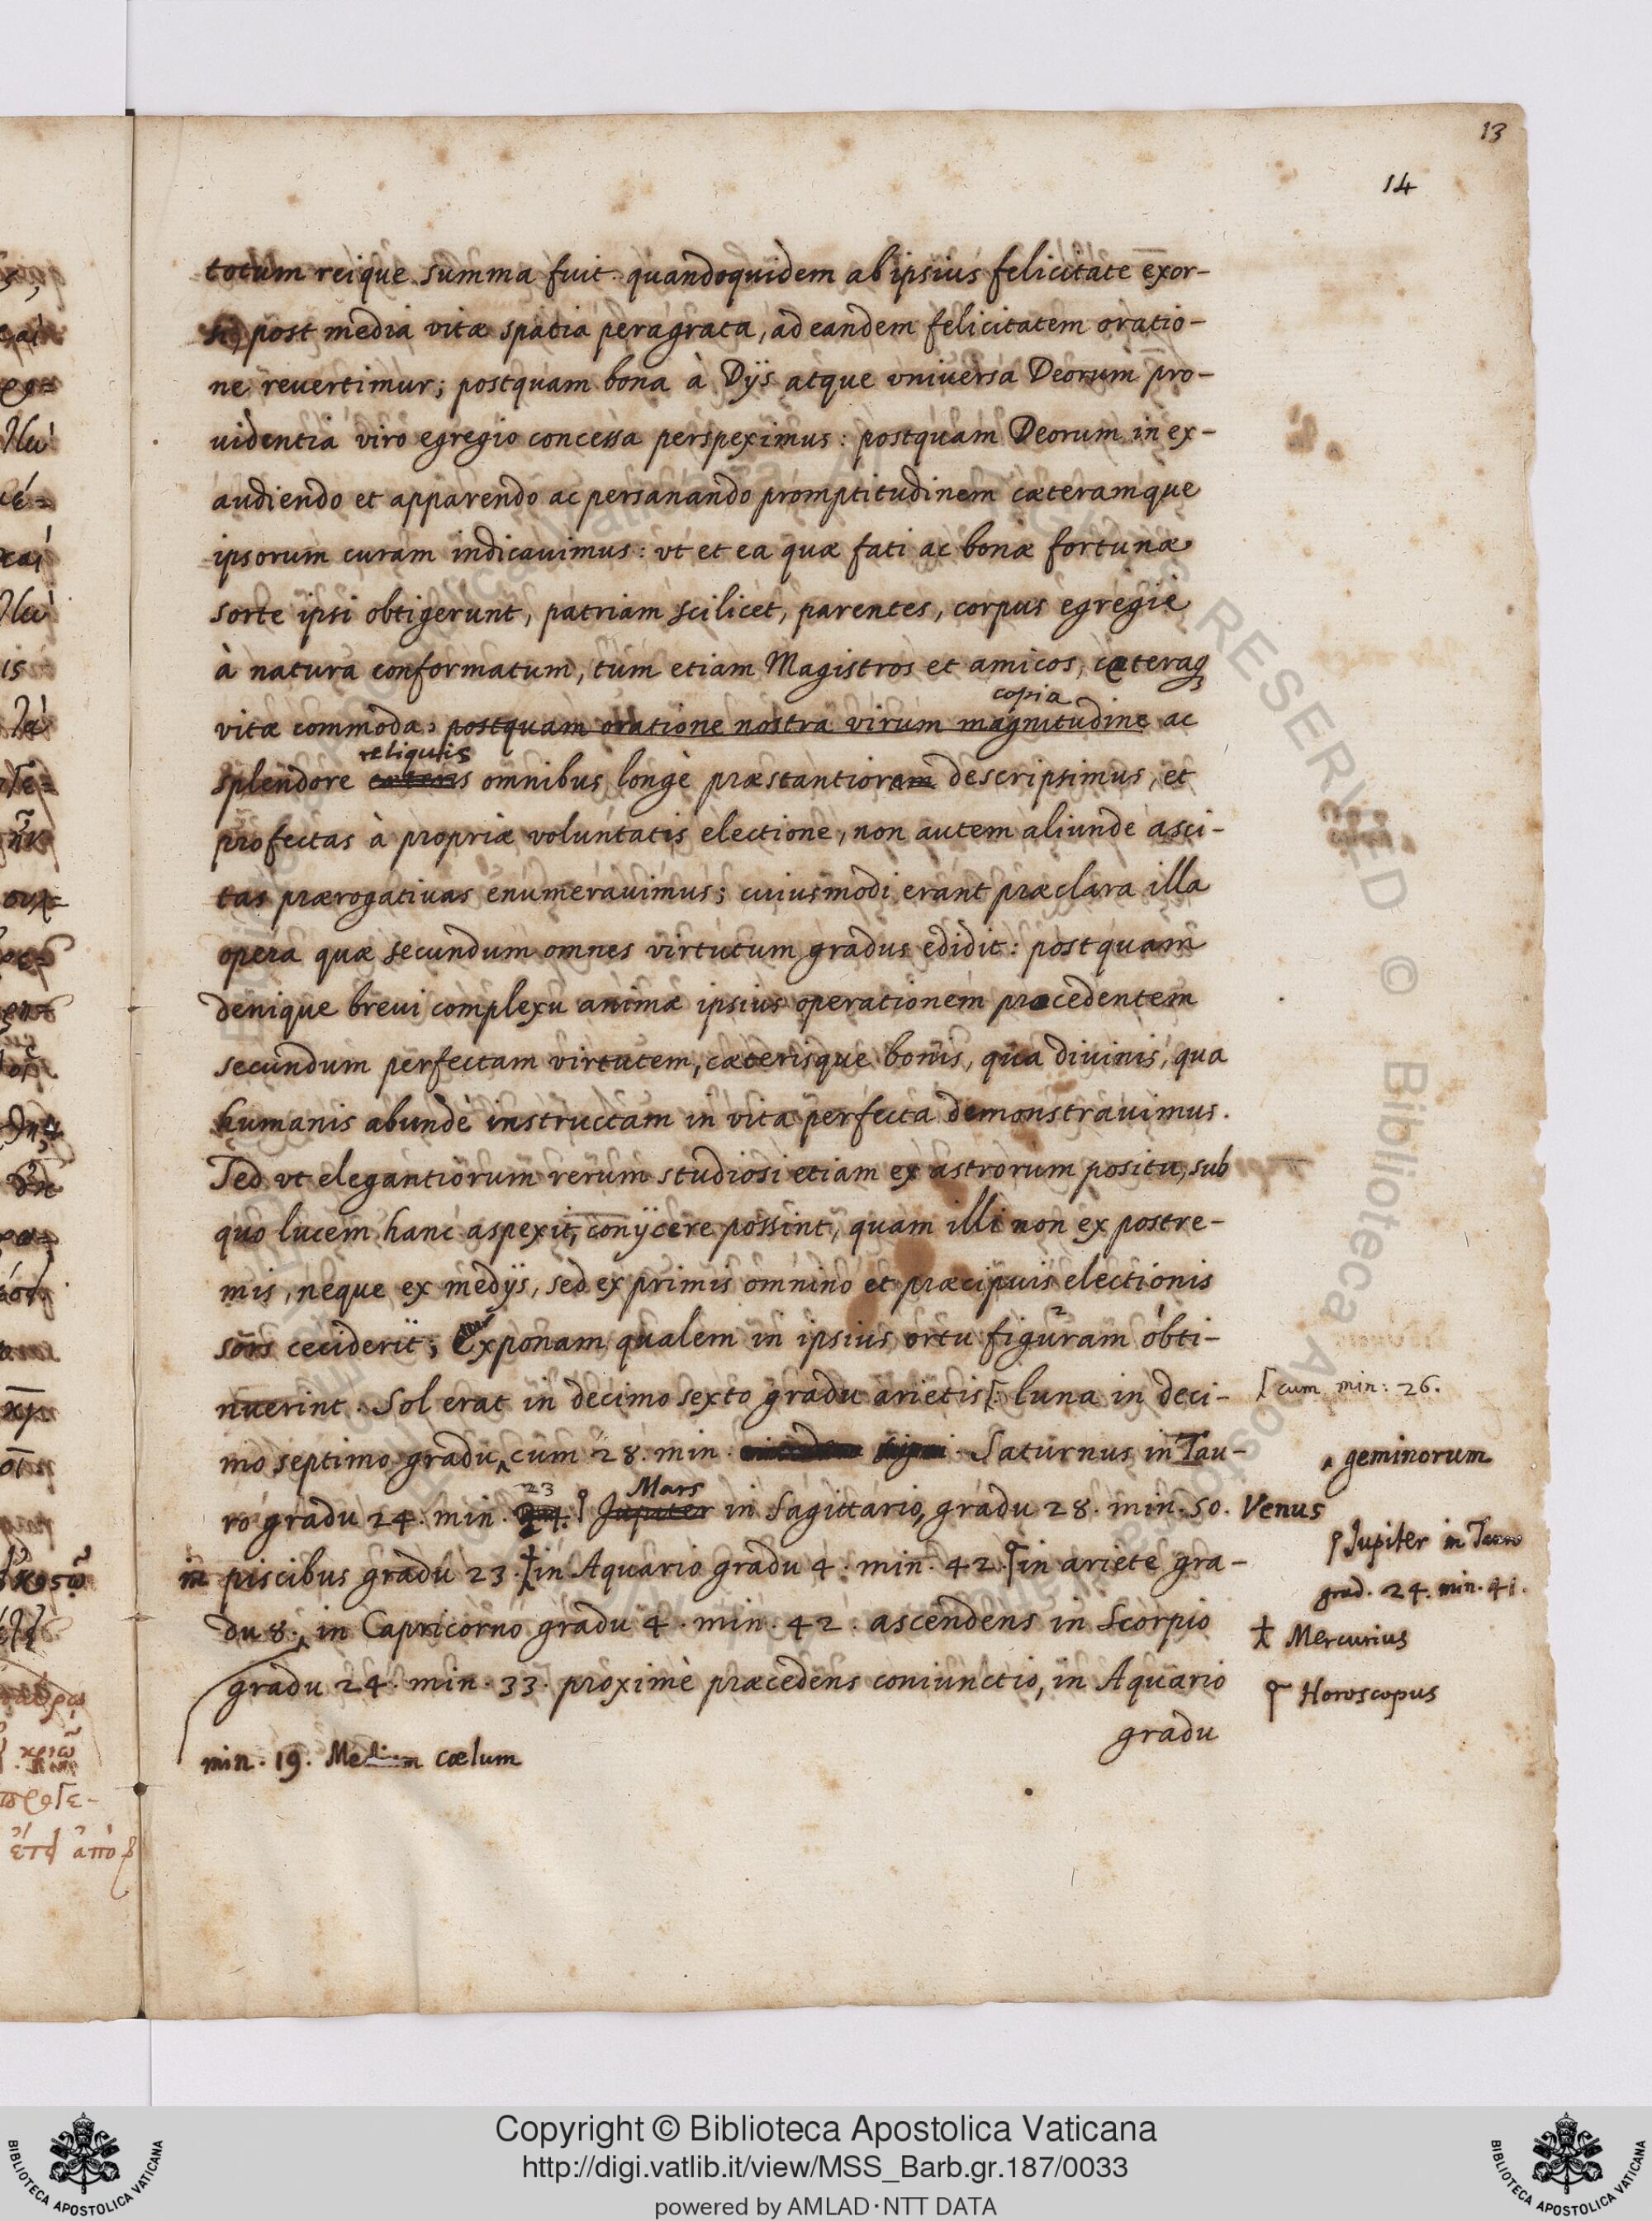 13
14
totum reique summa fuit. quandoquidem ab ipsius felicitate exor-
si, post media vitæ spatia peragrata, ad eandem felicitatem oratio-
ne revertimur; postquam bona à Dÿs atque vniversa Deorum pro-
uidentia viro egregio concessa perspeximus: postquam Deorum in ex-
audiendo et apparendo ac persanando promptitudinem cæteramque
ipsorum curam indicavimus: vt et ea quæ fati ac bonæ fortunæ
sorte ipsi obtigerunt, patriam scilicet, parentes, corpus egregiè
à natura conformatum, tum etiam Magistros et amicos, cæteraq
copia
vitæ commoda, postquam oratione nostra virum magnitudine ac
reliquis
splendore omnibus longè præstantiorem descripsimus, et
profectas à propriæ voluntatis electione, non autem aliunde asci-
tas prærogativas enumeravimus; cuiusmodi erant præclara illa
opera quæ secundum omnes virtutum gradus edidit: postquam
denique brevi complexu animæ ipsius operationem procedentem
secundum perfectam virtutem, cæterisque bonis, qua divinis, qua
humanis abundè instructam in vita perfecta demonstravimus.
Sed vt elegantiorum rerum studiosi etiam ex astrorum positu, sub
quo lucem hanc aspexit, conÿcere possint, quam illi non ex postre-
mis, neque ex medÿs, sed ex primis omnino et præcipuis electionis
sors ceciderit; Exponam qualem in ipsius ortu figuram obti-
nuerint. Sol erat in decimo sexto gradu arietis: luna in deci-
[cum min: 26.
mo septimo gradu ^ cum 28. min. Saturnus in Tau-
^ geminorum
23 Mars
ro gradu 24. min. Jupiter in Sagittario, gradu 28. min. 50. Venus
Jupiter in Tauro
grad. 24. min. 41.
in piscibus gradu 23. in Aquario gradu 4. min. 42. in ariete gra-
du 8. in Capricorno gradu 4. min. 42. ascendens in Scorpio
Mercurius
gradu 24. min. 33. proximè præcedens coniunctio, in Aquario
Horoscopus
gradu
min. 19. Medium cælum
Copyright © Biblioteca Apostolica Vaticana
http://digi.vatlib.it/view/MSS_Barb.gr.187/0033
powered by AMLAD·NTT DATA